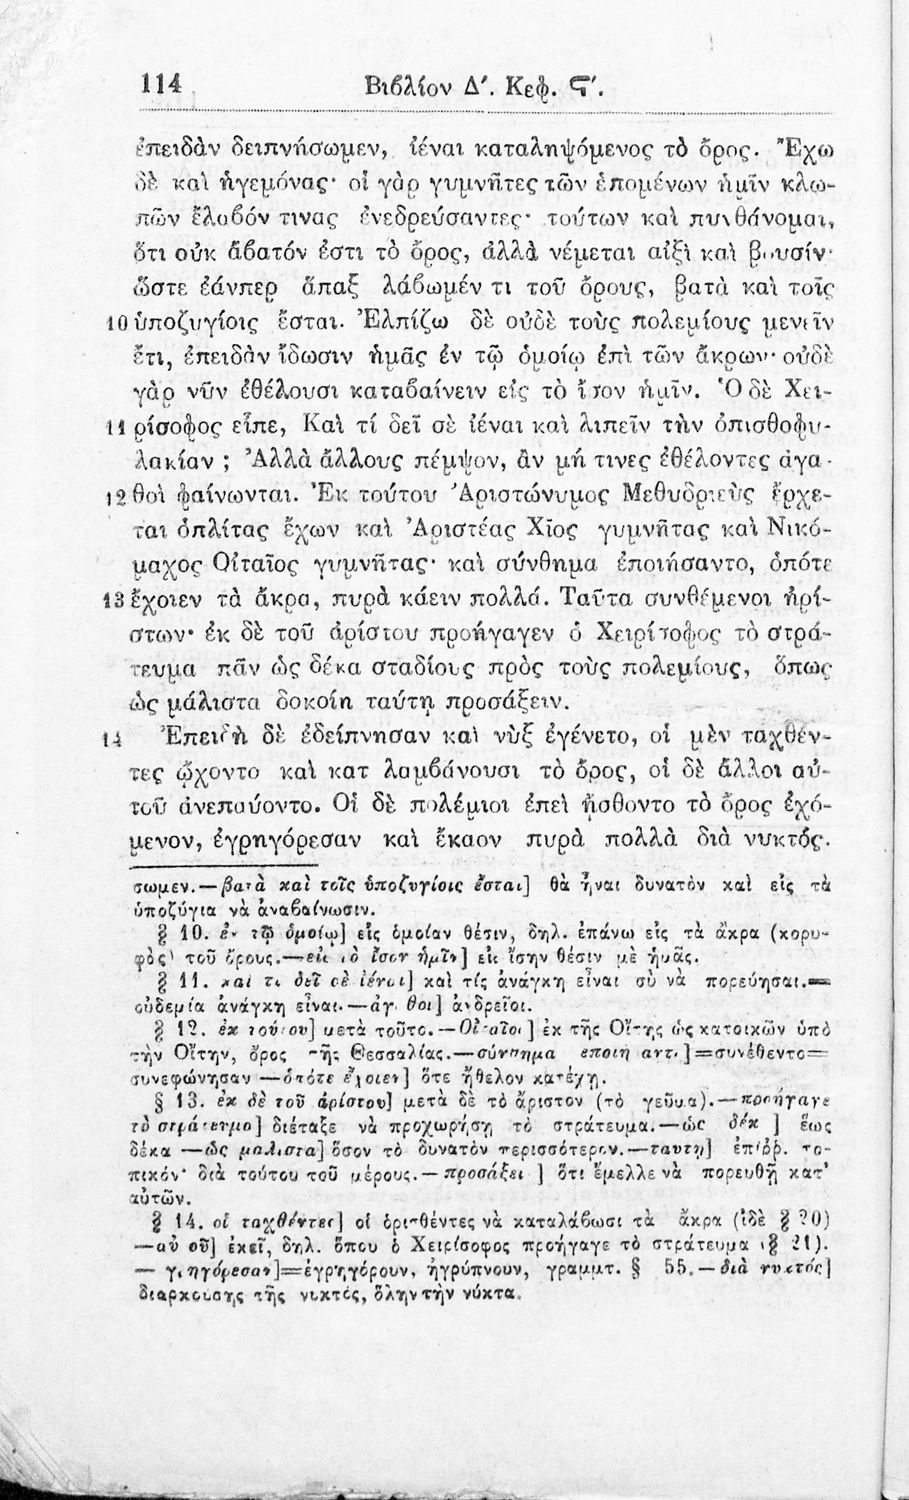 114 Βιβλίον Δ΄. Κεφ. Ϛ΄.
ἐπειδὰν δειπνήσωμεν, ἰέναι καταληψόμενος τὸ ὄρος. Ἔχω
δὲ καὶ ἡγεμόνας· οἱ γὰρ γυμνῆτες τῶν ἑπομένων ἡμῖν κλω-
πῶν ἔλαβόν τινας ἐνεδρεύσαντες· τούτων καὶ πυνθάνομαι,
ὅτι οὐκ ἄβατόν ἐστι τὸ ὄρος, ἀλλὰ νέμεται αἰξὶ καὶ βουσίν·
ὥστε ἐάνπερ ἅπαξ λάβωμέν τι τοῦ ὄρους, βατὰ καὶ τοῖς
10 ὑποζυγίοις ἔσται. Ἐλπίζω δὲ οὐδὲ τοὺς πολεμίους μενεῖν
ἔτι, ἐπειδὰν ἴδωσιν ἡμᾶς ἐν τῷ ὁμοίῳ ἐπὶ τῶν ἄκρων· οὐδὲ
γὰρ νῦν ἐθέλουσι καταβαίνειν εἰς τὸ ἴσον ἡμῖν. Ὁ δὲ Χει-
11 ρίσοφος εἶπε, Καὶ τί δεῖ σὲ ἰέναι καὶ λιπεῖν τὴν ὀπισθοφυ-
λακίαν ; Ἀλλὰ ἄλλους πέμψον, ἂν μή τινες ἐθέλοντες ἀγα-
12 θοὶ φαίνωνται. Ἐκ τούτου Ἀριστώνυμος Μεθυδριεὺς ἔρχε-
ται ὁπλίτας ἔχων καὶ Ἀριστέας Χῖος γυμνῆτας καὶ Νικό-
μαχος Οἰταῖος γυμνῆτας· καὶ σύνθημα ἐποιήσαντο, ὁπότε
13 ἔχοιεν τὰ ἄκρα, πυρὰ κάειν πολλά. Ταῦτα συνθέμενοι ἠρί-
στων· ἐκ δὲ τοῦ ἀρίστου προήγαγεν ὁ Χειρίσοφος τὸ στρά-
τευμα πᾶν ὡς δέκα σταδίους πρὸς τοὺς πολεμίους, ὅπως
ὡς μάλιστα δοκοίη ταύτῃ προσάξειν.
14 Ἐπειδὴ δὲ ἐδείπνησαν καὶ νὺξ ἐγένετο, οἱ μὲν ταχθέν-
τες ᾤχοντο καὶ κατ λαμβάνουσι τὸ ὄρος, οἱ δὲ ἄλλοι αὐ-
τοῦ ἀνεπαύοντο. Οἱ δὲ πολέμιοι ἐπεὶ ᾔσθοντο τὸ ὄρος ἐχό-
μενον, ἐγρηγόρεσαν καὶ ἔκαον πυρὰ πολλὰ διὰ νυκτός.
σωμεν.—βατὰ καὶ τοῖς ὑποζυγίοις ἔσται] θὰ ἦναι δυνατὸν καὶ εἰς τὰ
ὑποζύγια νὰ ἀναβαίνωσιν.
§ 10. ἐν τῷ ὁμοίῳ] εἰς ὁμοίαν θέσιν, δηλ. ἐπάνω εἰς τὰ ἄκρα (κορυ-
φὰς) τοῦ ὄρους.—εἰς τὸ ἴσον ἡμῖν] εἰς ἴσην θέσιν μὲ ἡμᾶς.
§ 11. καὶ τί δεῖ σὲ ἰέναι] καὶ τίς ἀνάγκη εἶναι σὺ νὰ πορεύησαι.=
οὐδεμία ἀνάγκη εἶναι.—ἀγαθοὶ] ἀνδρεῖοι.
§ 12. ἐκ τούτου] μετὰ τοῦτο.—Οἰταῖοι] ἐκ τῆς Οἴτης ὡς κατοικῶν ὑπὸ
τὴν Οἴτην, ὄρος τῆς Θεσσαλίας.—σύνθημα ἐποιήσαντο]=συνέθεντο=
συνεφώνησαν—ὁπότε ἔχοιεν] ὅτε ἤθελον κατέχῃ.
§ 13. ἐκ δὲ τοῦ ἀρίστου] μετὰ δὲ τὸ ἄριστον (τὸ γεῦμα).—προήγαγε
τὸ στράτευμα] διέταξε νὰ προχωρήσῃ τὸ στράτευμα.—ὡς δέκα] ἕως
δέκα—ὡς μάλιστα] ὅσον τὸ δυνατὸν περισσότερον.—ταύτῃ] ἐπίρρ. το-
πικόν· διὰ τούτου τοῦ μέρους.—προσάξειν] ὅτι ἔμελλε νὰ πορευθῇ κατ'
αὐτῶν.
§ 14. οἱ ταχθέντες] οἱ ὁρισθέντες νὰ καταλάβωσι τὰ ἄκρα (ἰδὲ § 20)
—αὐτοῦ] ἐκεῖ, δηλ. ὅπου ὁ Χειρίσοφος προήγαγε τὸ στράτευμα (§ 21).
—ἐγρηγόρεσαν]=ἐγρηγόρουν, ἠγρύπνουν, γραμμτ. § 55.—διὰ νυκτός]
διαρκούσης τῆς νυκτός, ὅλην τὴν νύκτα.